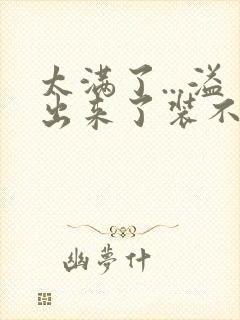 太满了…溢
出来了装不
幽夢什